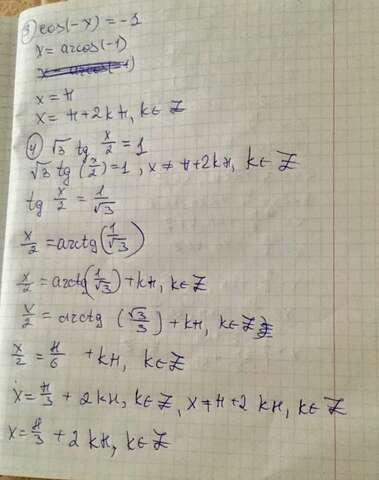 3) cos(-x) = -1
x = arcos(-1)
x = π
x = π + 2kπ, k∈Z
4) √3 tg x/2 = 1
√3 tg(x/2) = 1, x ≠ π + 2kπ, k∈Z
tg x/2 = 1/√3
x/2 = arctg(1/√3)
x/2 = arctg(1/√3) + kπ, k∈Z
x/2 = arctg(√3/3) + kπ, k∈Z
x/2 = π/6 + kπ, k∈Z
x = π/3 + 2kπ, k∈Z, x ≠ π + 2kπ, k∈Z
x = π/3 + 2kπ, k∈Z